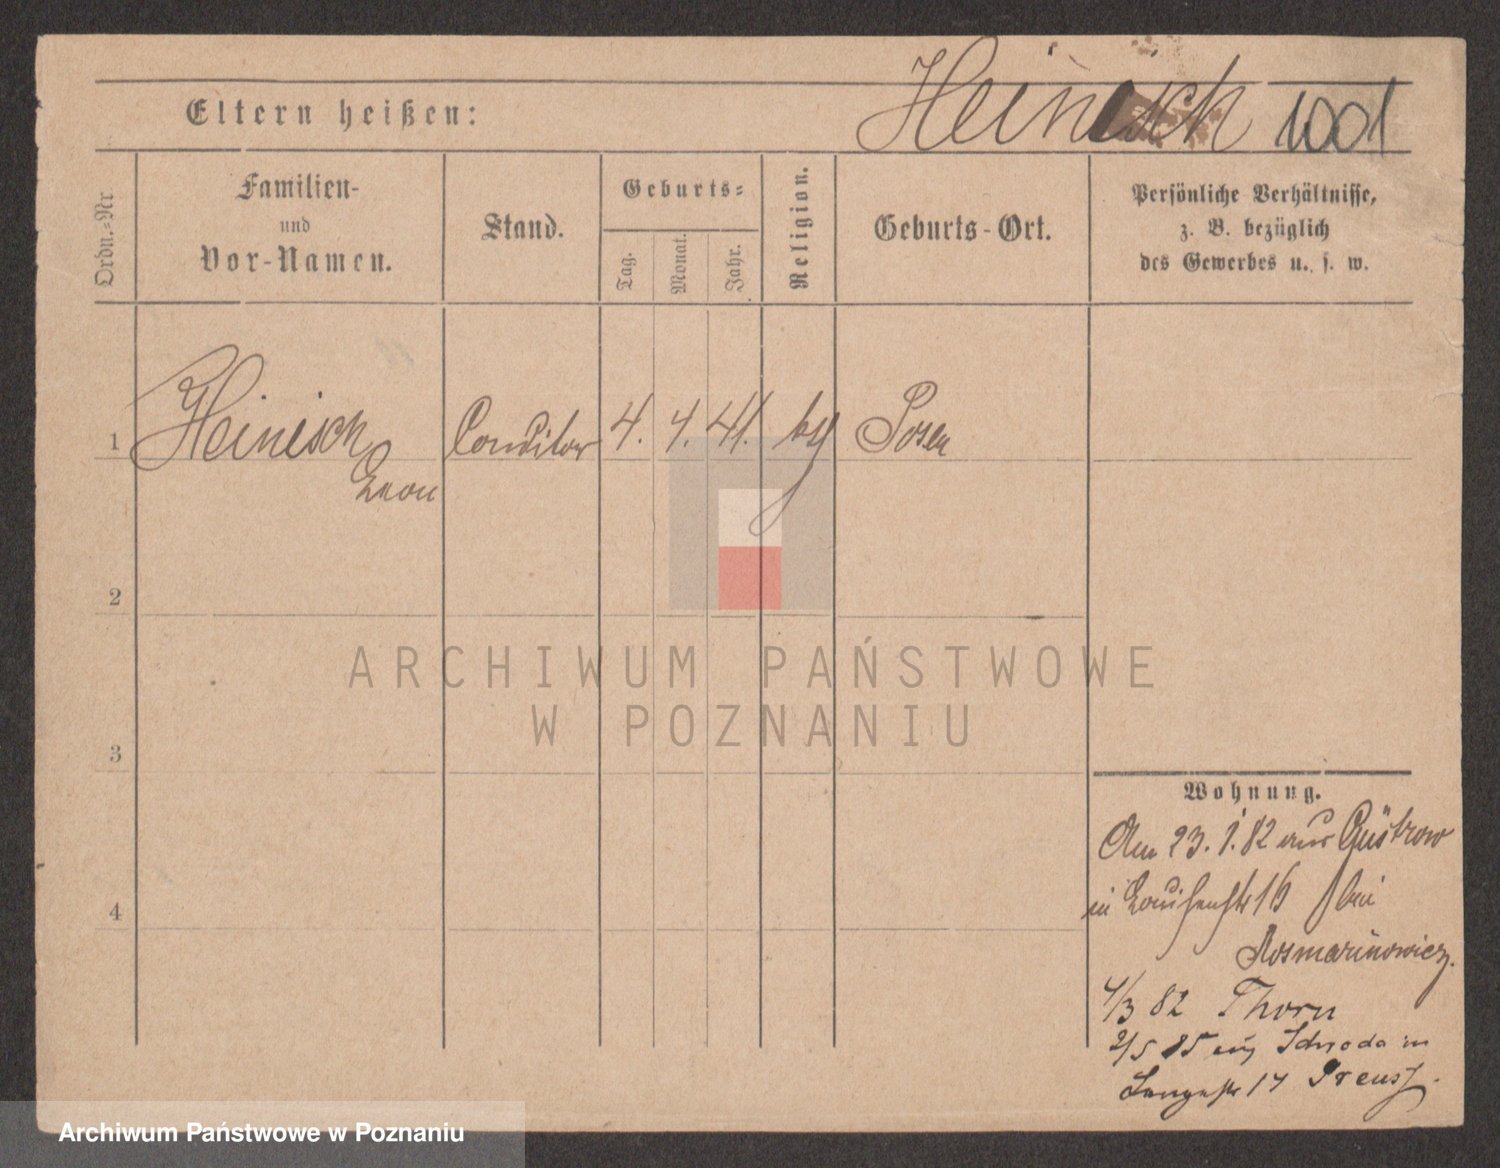 Eltern heißen:
Heinisch 1001
Ordn.=Nr
Familien-
und
Vor-Namen.
Stand.
Geburts=
Tag.
Monat.
Jahr.
Religion.
Geburts-Ort.
Persönliche Verhältnisse,
z. B. bezüglich
des Gewerbes u. s. w.
1
Heinisch
Leon
Conditor
4. 4. 41.
Posen
2
3
4
ARCHIWUM PAŃSTWOWE
W POZNANIU
Wohnung.
Am 23. 1. 82 aus Güstrow
in Louisenstr 16 bei
Rosmarinowicz.
4/3 82 Thorn
2/5 85 aus Schroda in
Langestr 14 Preuss.
Archiwum Państwowe w Poznaniu